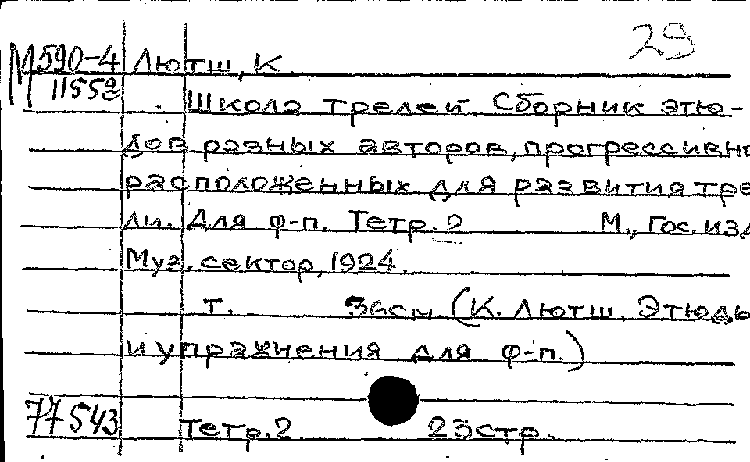 29
М590-4 Лютш, К.
1155а
Школа трелей. Сборник этю-
дов разных авторов, прогрессивно
расположенных для развития тре
ли. Для ф-п. Тетр. 2 М., Гос. изд
Муз. сектор, 1924.
т. 36см (К. Лютш. Этюды
и упражнения для ф-п.)
77543 Тетр. 2 23стр.